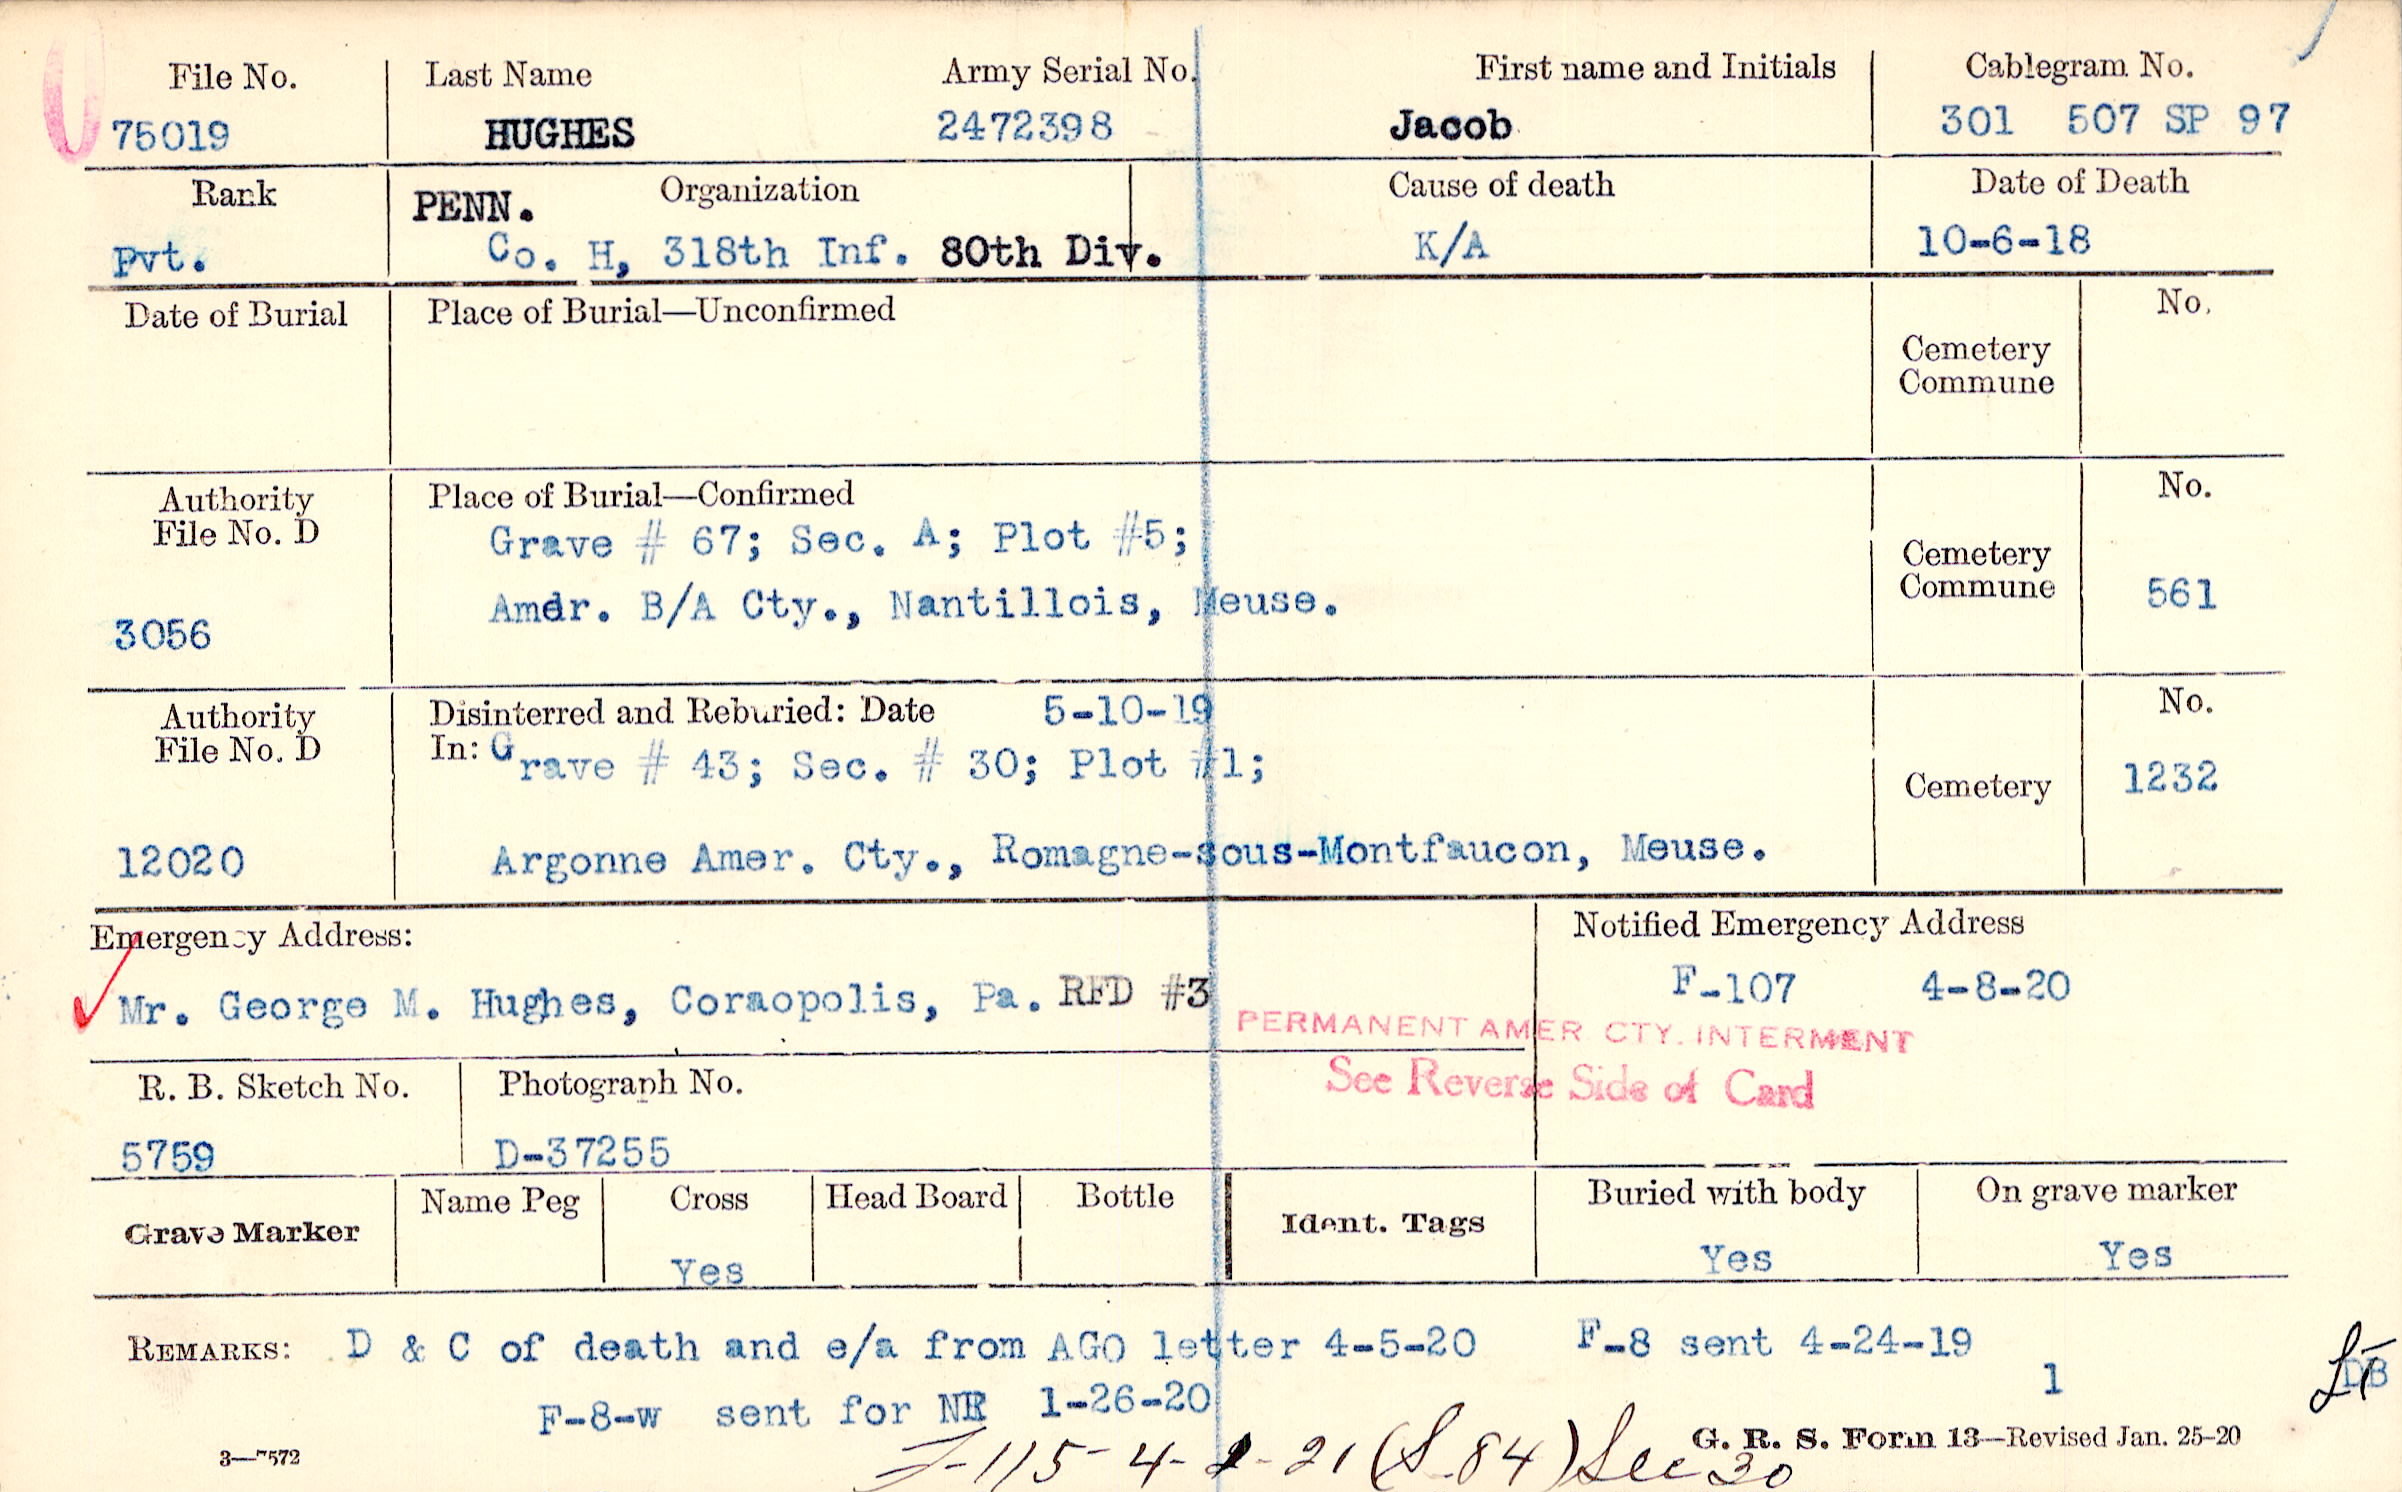 File No. Last Name Army Serial No. First name and Initials Cablegram No.
75019 HUGHES 2472398 Jacob 301 507 SP 97
Rank PENN. Organization Cause of death Date of Death
Pvt. Co. H, 318th Inf. 80th Div. K/A 10-6-18
Date of Burial Place of Burial—Unconfirmed No.
Cemetery
Commune
Authority Place of Burial—Confirmed No.
File No. D Grave # 67; Sec. A; Plot #5;
Cemetery
Commune 561
3056 Amdr. B/A Cty., Nantillois, Meuse.
Authority Disinterred and Reburied: Date 5-10-19 No.
File No. D In: Grave # 43; Sec. # 30; Plot #1;
Cemetery 1232
12020 Argonne Amer. Cty., Romagne-sous-Montfaucon, Meuse.
Emergency Address: Notified Emergency Address
Mr. George M. Hughes, Coraopolis, Pa. RFD #3 F-107 4-8-20
PERMANENT AMER CTY. INTERMENT
See Reverse Side of Card
R. B. Sketch No. Photograph No.
5759 D-37255
Grave Marker Name Peg Cross Head Board Bottle Ident. Tags Buried with body On grave marker
Yes Yes Yes
REMARKS: D & C of death and e/a from AGO letter 4-5-20 F-8 sent 4-24-19
1 DB
F-8-w sent for NR 1-26-20
-115- 4- -21 (S-84) Sec 30
3—7572 G. R. S. Form 13—Revised Jan. 25-20